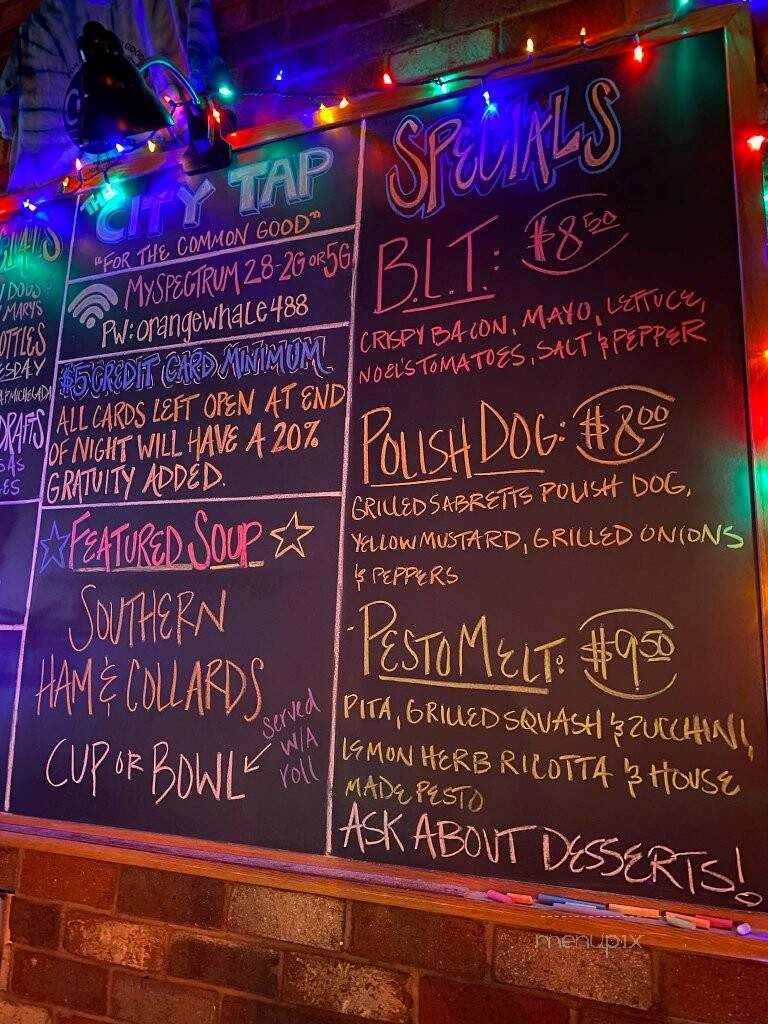 DOGS
MARYS
OTTLES
DRAFTS
THE CITY TAP
"FOR THE COMMON GOOD"
MYSPECTRUM28-2G OR 5G
PW: orangewhale488
$5 CREDIT CARD MINIMUM
ALL CARDS LEFT OPEN AT END
OF NIGHT WILL HAVE A 20%
GRATUITY ADDED.
FEATURED SOUP
SOUTHERN
HAM & COLLARDS
CUP OR BOWL
served
W/A
roll
SPECIALS
B.L.T.: $8.50
CRISPY BACON, MAYO, LETTUCE,
NOEL'S TOMATOES, SALT & PEPPER
POLISH DOG: $8.00
GRILLED SABRETTS POLISH DOG,
YELLOW MUSTARD, GRILLED ONIONS
& PEPPERS
-PESTO MELT: $9.50
PITA, GRILLED SQUASH & ZUCCHINI,
LEMON HERB RICOTTA & HOUSE
MADE PESTO
ASK ABOUT DESSERTS!
menupix